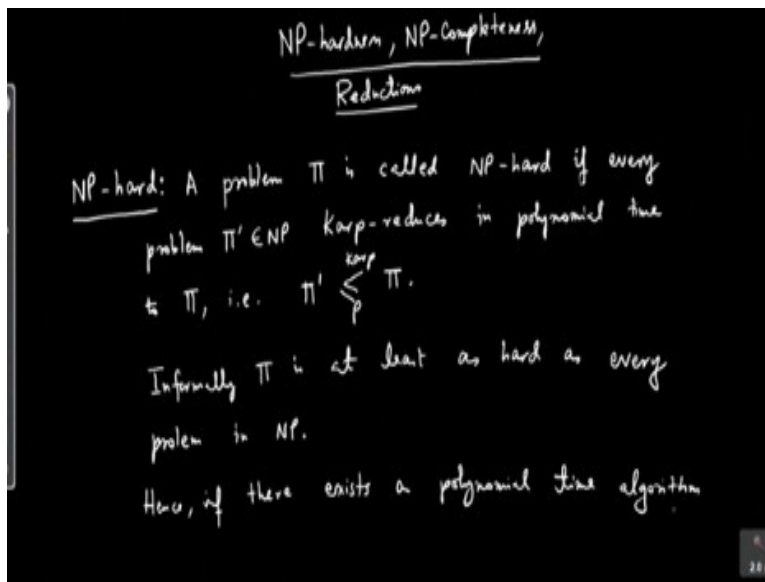 NP-hardness, NP-Completeness,
Reductions
NP-hard: A problem Π is called NP-hard if every
problem Π' ∈ NP Karp-reduces in polynomial time
to Π, i.e. Π' ≤ₚᵏᵃʳᵖ Π.
Informally Π is at least as hard as every
prolem in NP.
Hence, if there exists a polynomial time algorithm
2.0